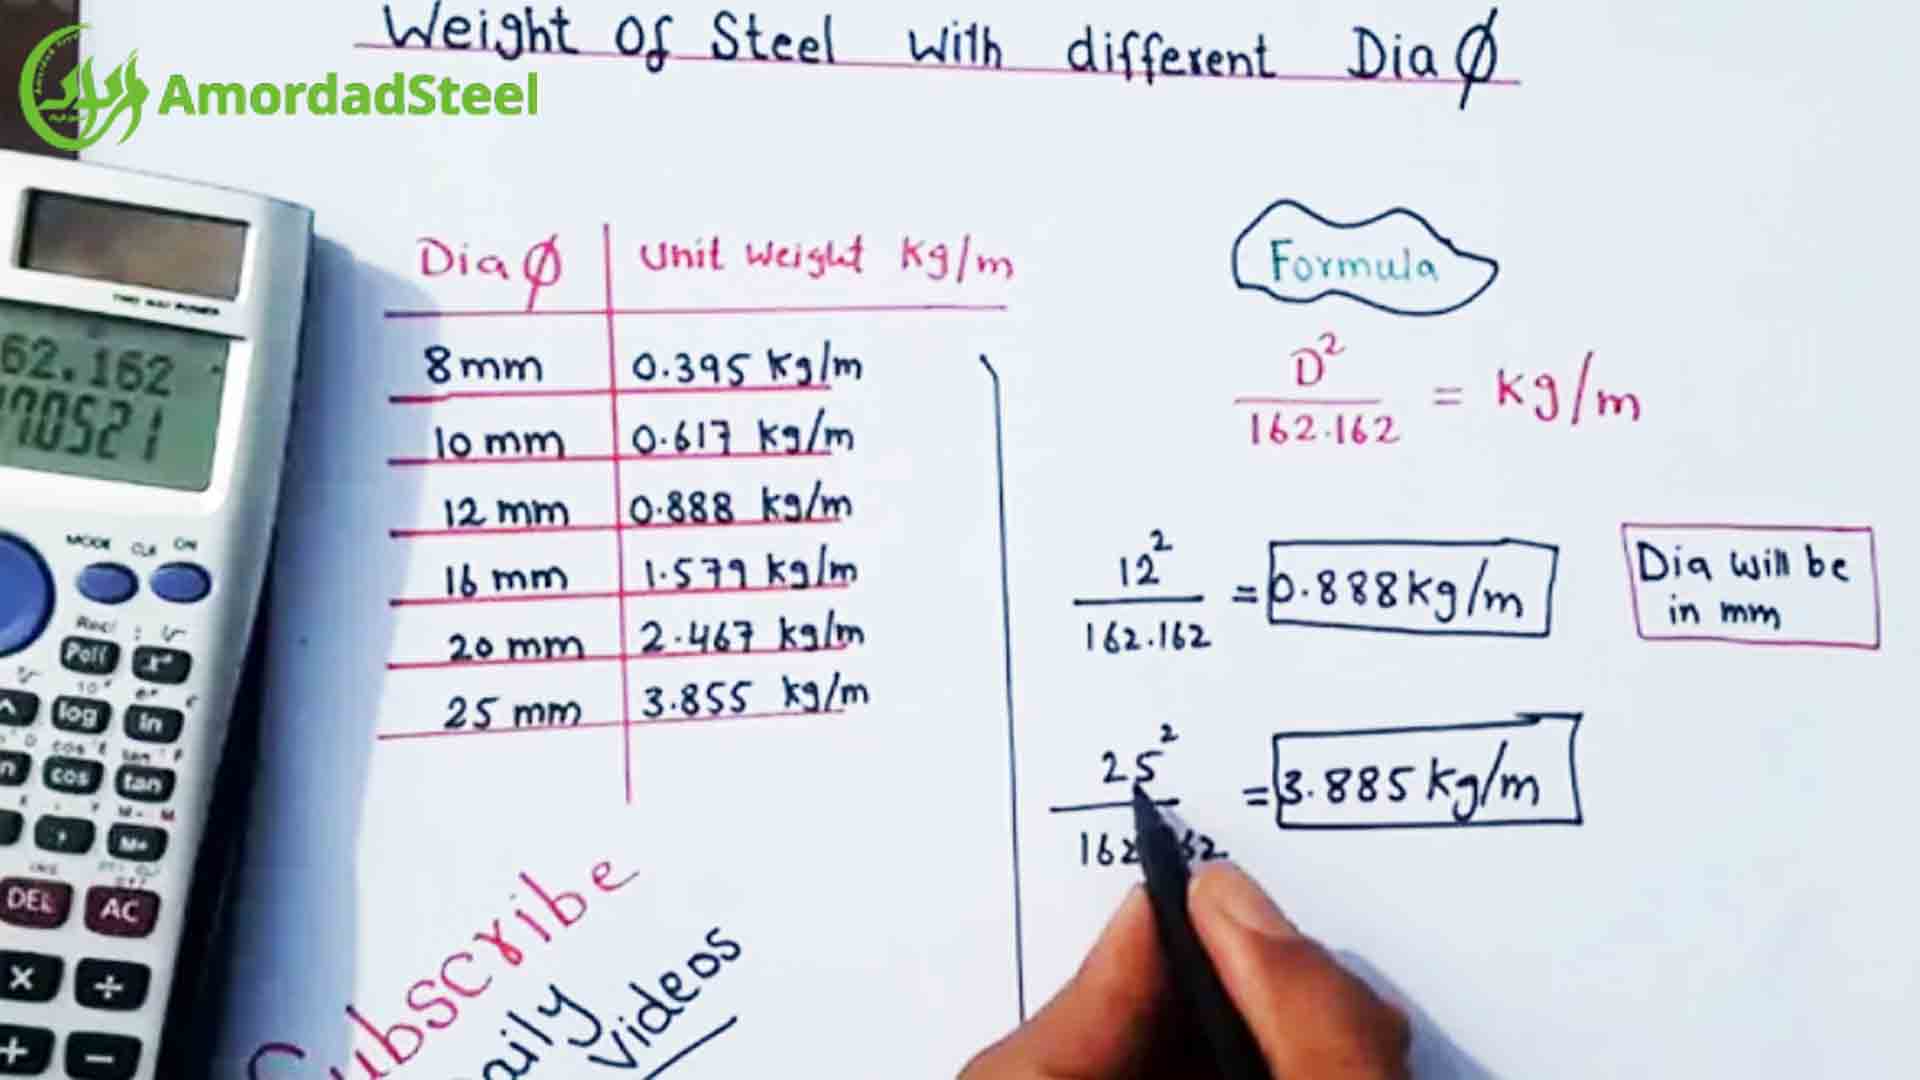 Weight Of Steel With different Dia Ø
AmordadSteel
Dia Ø Unit Weight Kg/m
8 mm 0.395 Kg/m
10 mm 0.617 kg/m
12 mm 0.888 kg/m
16 mm 1.579 kg/m
20 mm 2.467 kg/m
25 mm 3.855 kg/m
Formula
D²
162.162
= Kg/m
12²
162.162
= 0.888 kg/m
Dia will be
in mm
25²
= 3.885 kg/m
Subscribe
Videos
TWO WAY POWER
62.162
70521
MODE CLR ON
Pol(
log ln
cos tan
, M+
DEL AC
× ÷
+ −